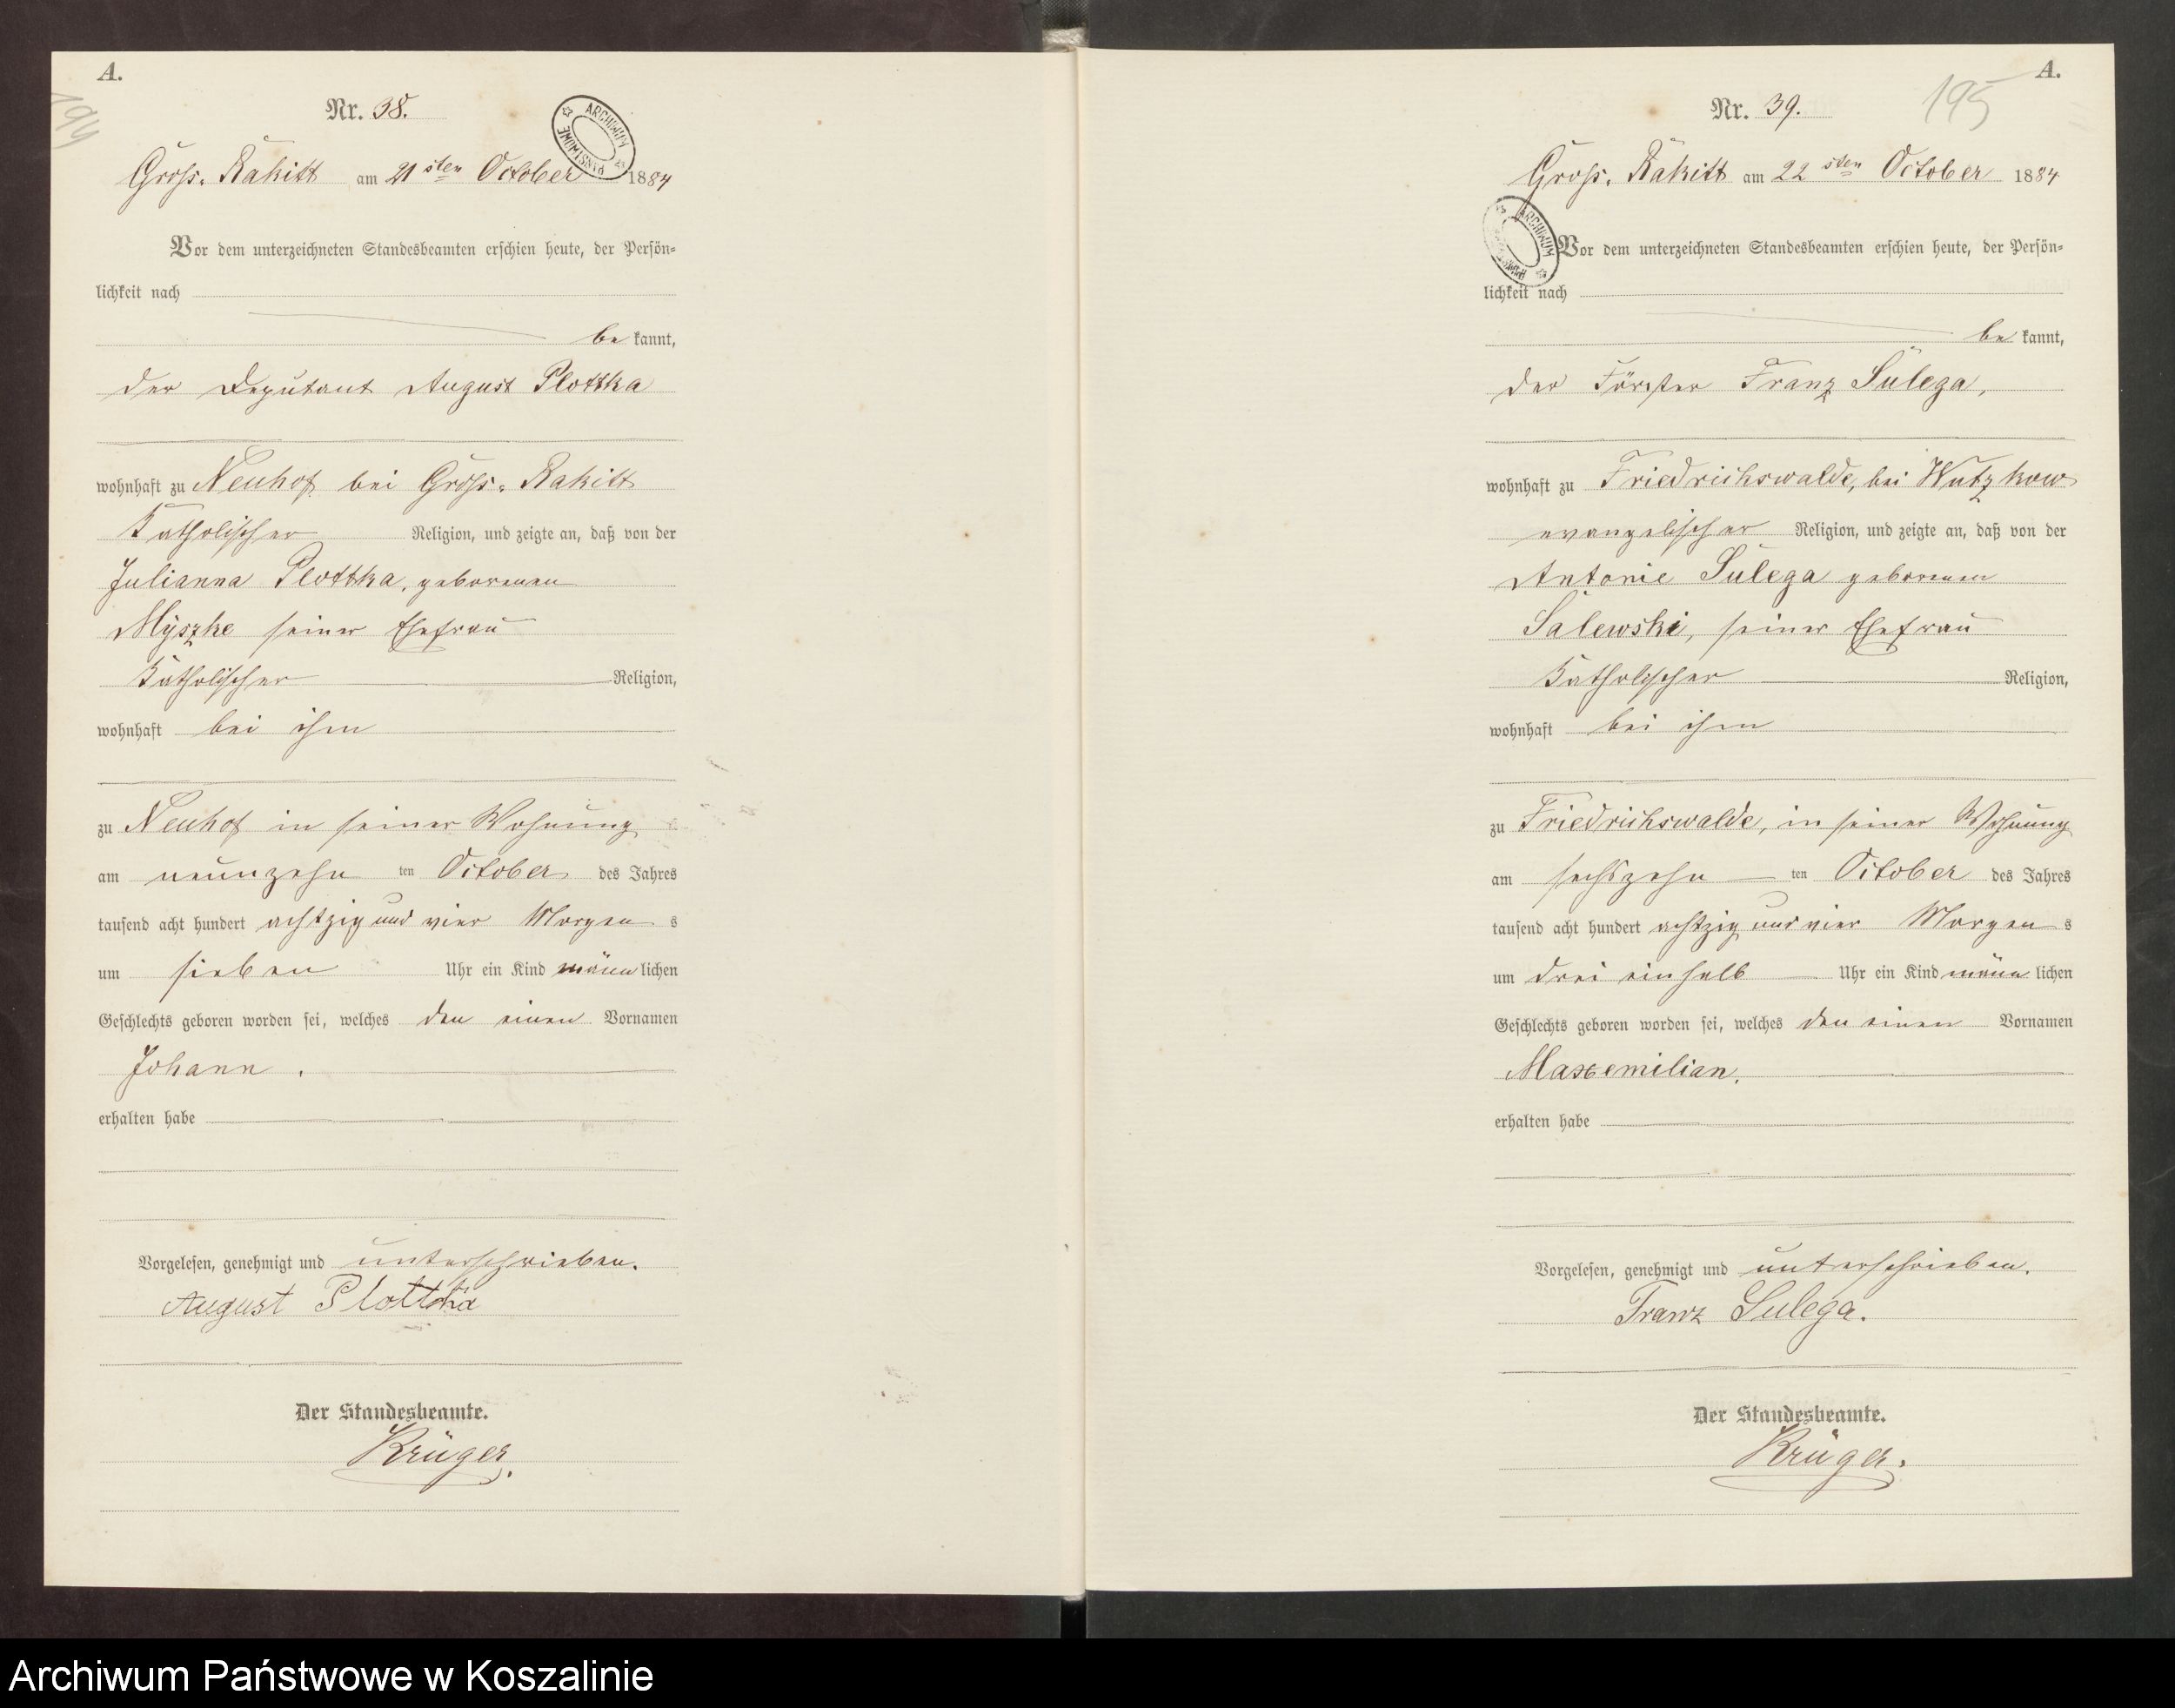 A.
194
Nr. 38.
ARCHIWUM PAŃSTWOWE
Gross. Rakitt am 21 sten October 1884
Vor dem unterzeichneten Standesbeamten erschien heute, der Persön-
lichkeit nach
be kannt,
der Deputant August Plottka
wohnhaft zu Neuhof bei Gross. Rakitt
Katholischer Religion, und zeigte an, daß von der
Julianna Plottka, geborenen
Myszke seiner Ehefrau
Katholischer Religion,
wohnhaft bei ihm
zu Neuhof in seiner Wohnung
am neunzehn ten October des Jahres
tausend acht hundert achtzig und vier Morgen s
um sieben Uhr ein Kind männ lichen
Geschlechts geboren worden sei, welches den einen Vornamen
Johann.
erhalten habe
Vorgelesen, genehmigt und unterschrieben.
August Plottka
Der Standesbeamte.
Krüger.
A.
195
Nr. 39.
Gross. Rakitt am 22 sten October 1884
ARCHIWUM
Vor dem unterzeichneten Standesbeamten erschien heute, der Persön-
lichkeit nach
be kannt,
der Förster Franz Sulega,
wohnhaft zu Friedrichswalde, bei Wutzkow
evangelischer Religion, und zeigte an, daß von der
Antonie Sulega geborenen
Salewski, seiner Ehefrau
Katholischer Religion,
wohnhaft bei ihm
zu Friedrichswalde, in seiner Wohnung
am sechszehn ten October des Jahres
tausend acht hundert achtzig und vier Morgen s
um drei einhalb Uhr ein Kind männ lichen
Geschlechts geboren worden sei, welches den einen Vornamen
Maxemilian.
erhalten habe
Vorgelesen, genehmigt und unterschrieben.
Franz Sulega.
Der Standesbeamte.
Krüger.
Archiwum Państwowe w Koszalinie